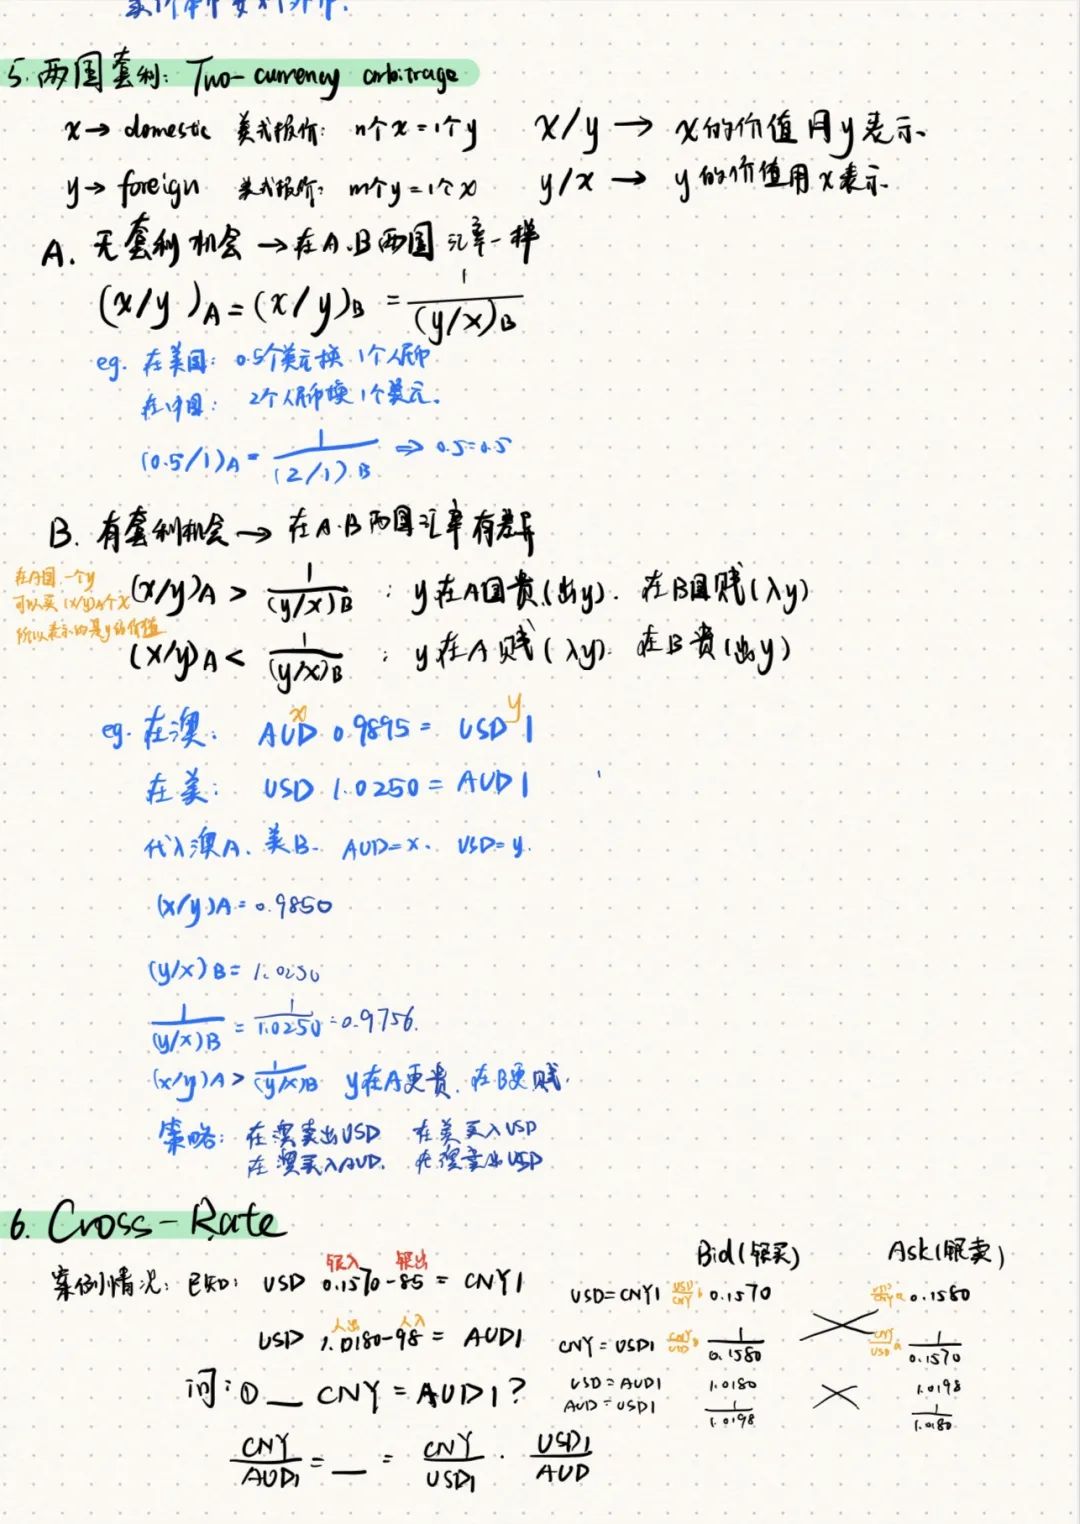 5. 两国套利: Two-currency arbitrage
x → domestic 美式报价: n个x = 1个y x/y → x的价值用y表示.
y → foreign 美式报价: m个y = 1个x y/x → y的价值用x表示.
A. 无套利机会 → 在A.B两国汇率一样
(x/y)A = (x/y)B = 1/(y/x)B
eg. 在美国: 0.5个美元换1个人民币
在中国: 2个人民币换1个美元。
(0.5/1)A = 1/(2/1)B ⇒ 0.5=0.5
B. 有套利机会 → 在A.B两国汇率有差异
在A国,一个y
可以买(x/y)A个x
所以表示的是y的价值
(x/y)A > 1/(y/x)B : y在A国贵(出y). 在B国贱(入y)
(x/y)A < 1/(y/x)B : y在A贱(入y). 在B贵(出y)
x y
eg. 在澳: AUD 0.9895 = USD 1
在美: USD 1.0250 = AUD 1
代入澳A、美B. AUD=x. USD=y.
(x/y)A = 0.9850
(y/x)B = 1.0250
1/(y/x)B = 1/1.0250 = 0.9756.
(x/y)A > 1/(y/x)B y在A更贵. 在B更贱.
策略: 在澳卖出USD 在美买入USD
在澳买入AUD. 在澳卖出USD
6. Cross-Rate
Bid(银买) Ask(银卖)
银入 银出
案例情况: 已知: USD 0.1570-85 = CNY1
USD=CNY1 USD/CNY 0.1570 0.1580
人出 人入
USD 1.0180-98 = AUD1
CNY=USD1 1/0.1580 CNY/USD 1/0.1570
问: ① __ CNY = AUD1?
USD=AUD1 1.0180 1.0198
AUD=USD1 1/1.0198 1/1.0180
CNY/AUD1 = __ = CNY/USD1 · USD1/AUD